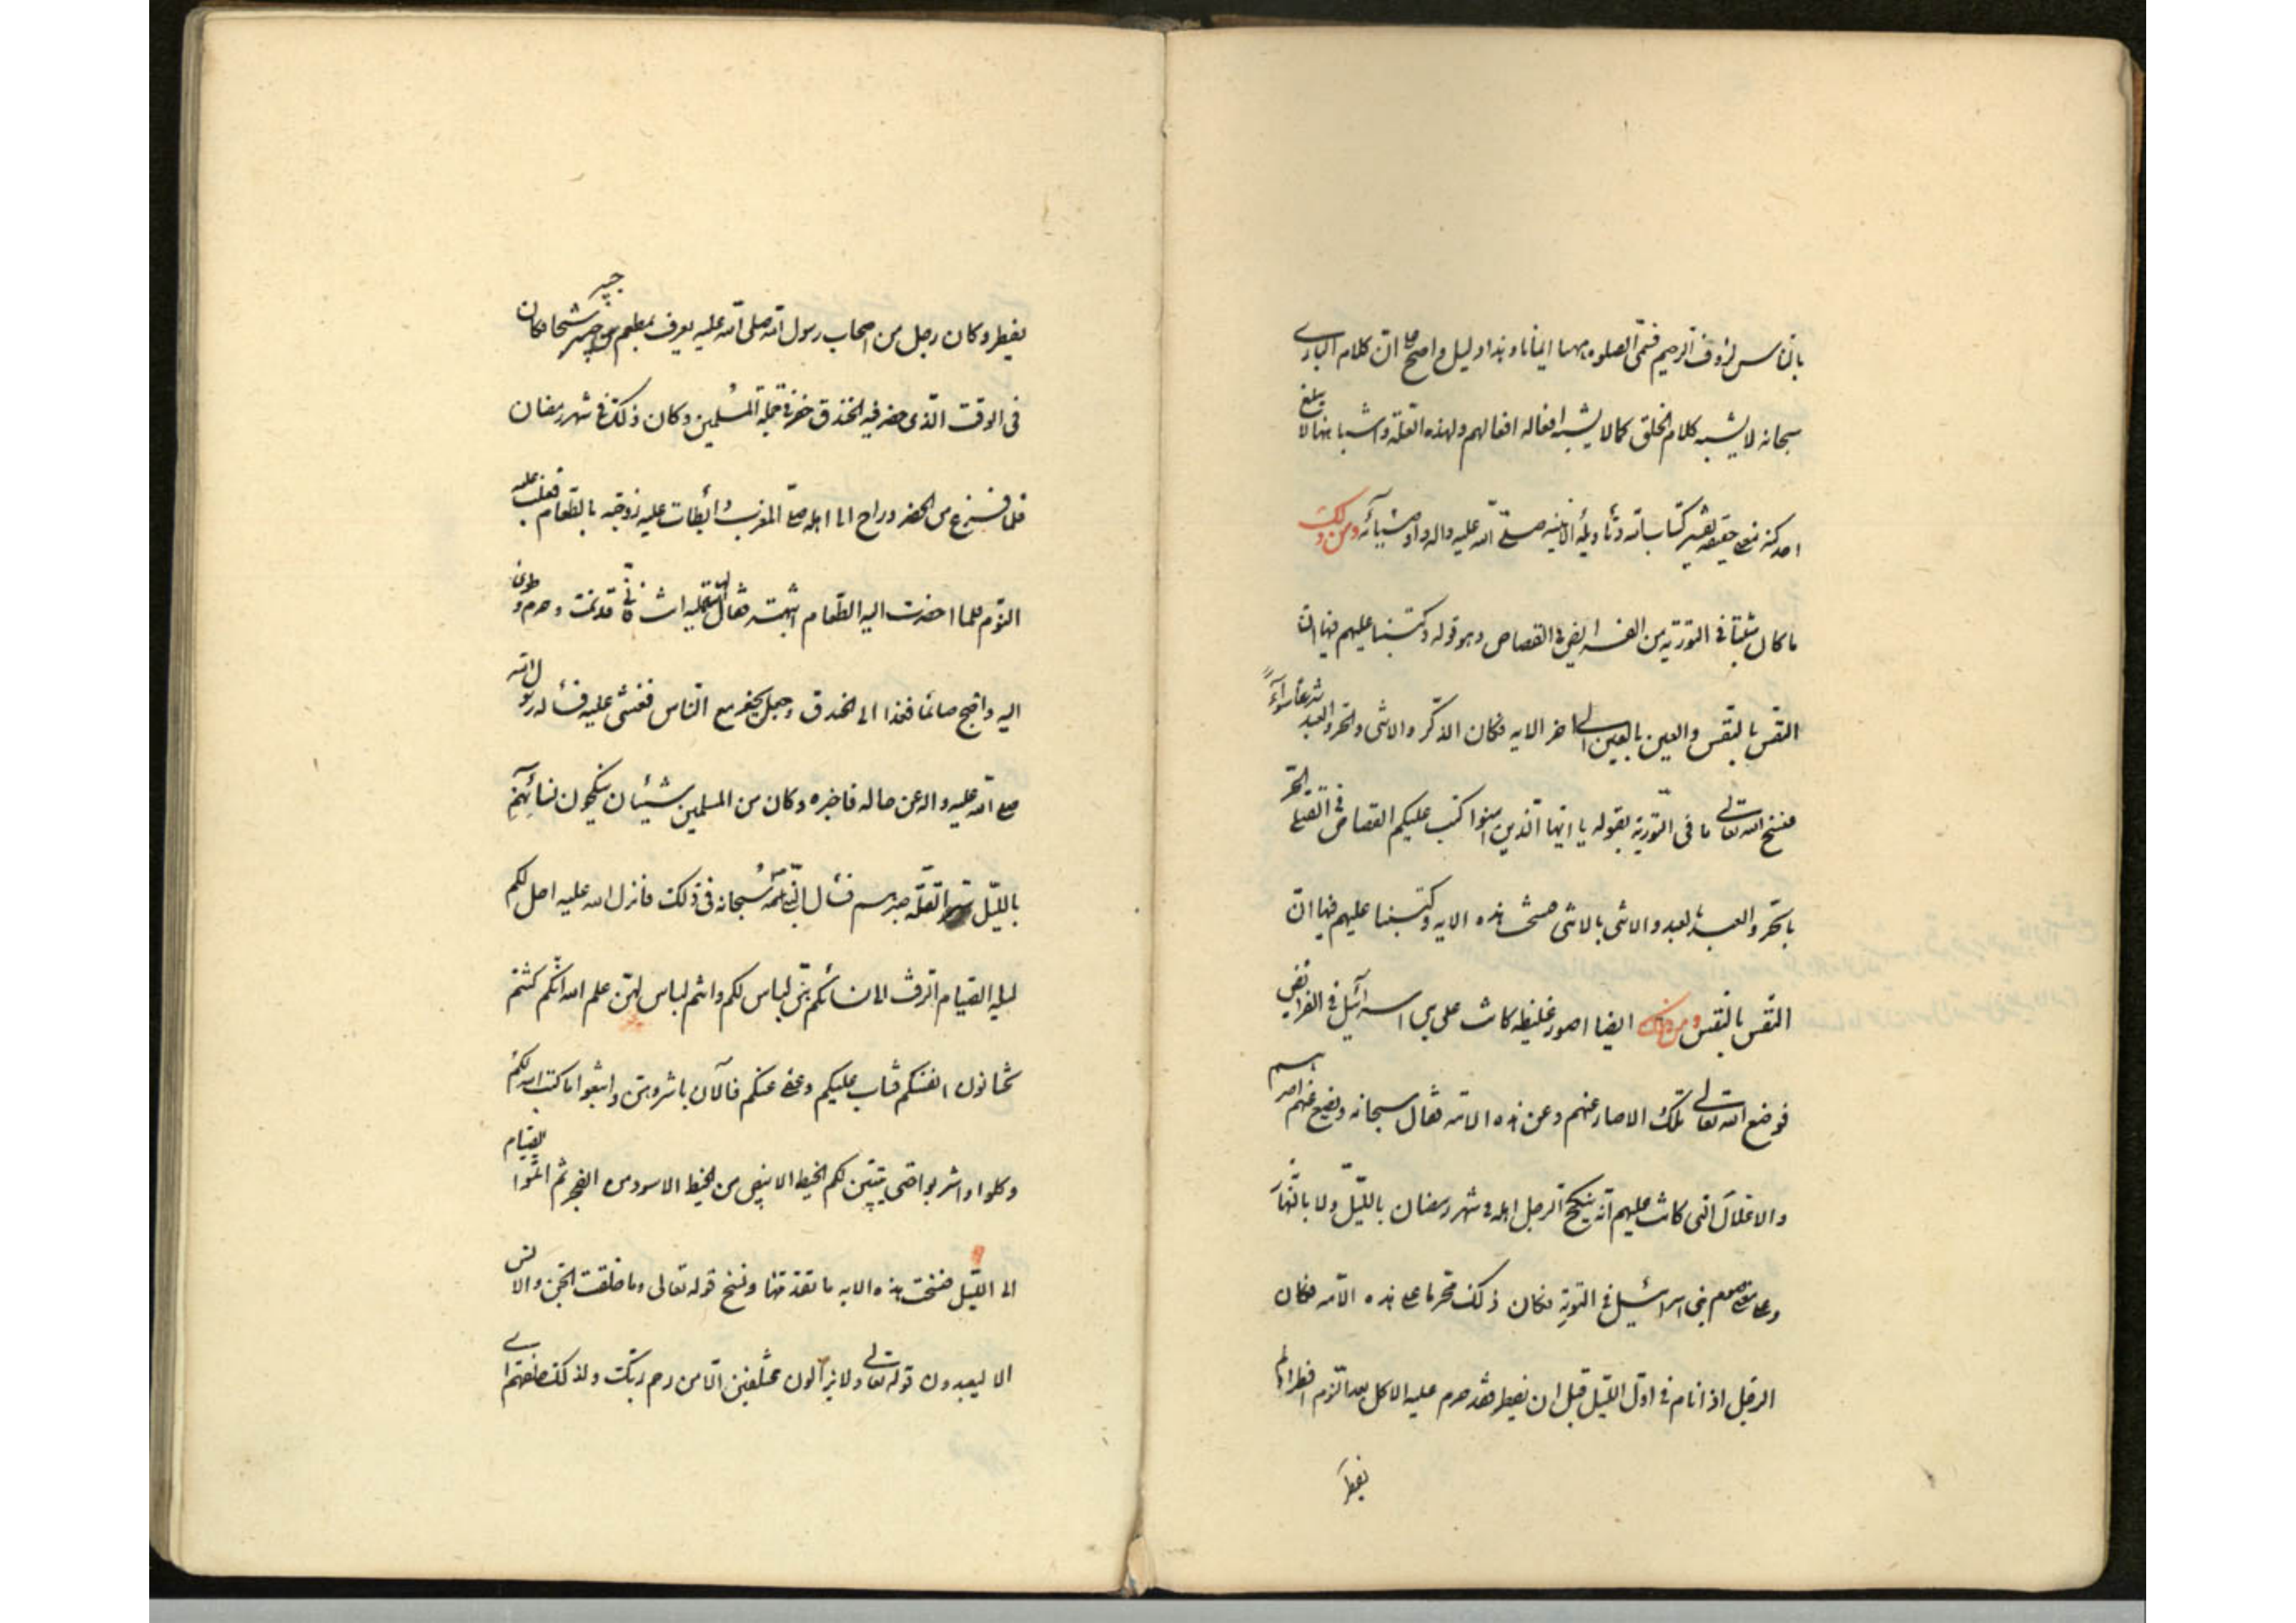 بالناس لرؤف الرحيم فسمى الصلوة ههنا ايمانا وهذا دليل واضح على ان كلام الباري
سبحانه لا يشبه كلام الخلق كما لا يشبه افعاله افعالهم ولهذه العلة واشباهها لا يبلغ
احد كنه معنى حقيقة تفسير كتاب الله وتأويله الا نبيه صلى الله عليه واله واوصيائه ومن ذلك
ما كان مثبتا في التورية من الفرايض في القصاص وهو قوله وكتبنا عليهم فيها ان
النفس بالنفس والعين بالعين الى اخر الايه فكان الذكر والانثى والحر والعبد شرعا سواء
فنسخ الله تعالى ما في التورية بقوله يا ايها الذين امنوا كتب عليكم القصاص في القتلى الحر
بالحر والعبد بالعبد والانثى بالانثى فنسخت هذه الايه وكتبنا عليهم فيها ان
النفس بالنفس ومن ذلك ايضا اصور غليظه كانت على بني اسرائيل في الفرايض
فوضع الله تعالى تلك الاصار عنهم وعن هذه الامه فقال سبحانه ويضع عنهم اصرهم
والاغلال التي كانت عليهم انه ينكح الرجل اهله في شهر رمضان بالليل ولا بالنهار
وعلى معنى صوم بني اسرائيل في التورية فكان ذلك محرما على هذه الامه فكان
الرجل اذا نام في اول الليل قبل ان يفطر فقد حرم عليه الاكل بعد النوم افطر ام لم
يفطر
يفطر وكان رجل من اصحاب رسول الله صلى الله عليه يعرف بمطعم بن جبير شيخا فكان
في الوقت الذي حضر فيه الخندق حضر في جملة المسلمين وكان ذلك في شهر رمضان
فلما فرغ من الحضر وراح الى اهله صلى المغرب وابطات عليه زوجته بالطعام فغلب عليه
النوم فلما احضرت اليه الطعام انبهته فقال لها استعمليه انت فاني قد نمت وحرم وطوى
اليه واصبح صائما فغدا الى الخندق وجعل يحفر مع الناس فغشى عليه فسأله رسول الله
صلى الله عليه واله عن حاله فاخبره وكان من المسلمين شبان ينكحون نسائهم
بالليل سرا لقلة صبرهم فسأل النبي الله سبحانه في ذلك فانزل الله عليه احل لكم
ليلة الصيام الرفث الى نسائكم هن لباس لكم وانتم لباس لهن علم الله انكم كنتم
تختانون انفسكم فتاب عليكم وعفى عنكم فالآن باشروهن وابتغوا ما كتب الله لكم
وكلوا واشربوا حتى يتبين لكم الخيط الابيض من الخيط الاسود من الفجر ثم اتموا الصيام
الى الليل فنسخت هذه الايه ما تقدمها ونسخ قوله تعالى وما خلقت الجن والانس
الا ليعبدون قوله تعالى ولا يزالون مختلفين الا من رحم ربك ولذلك خلقهم اي